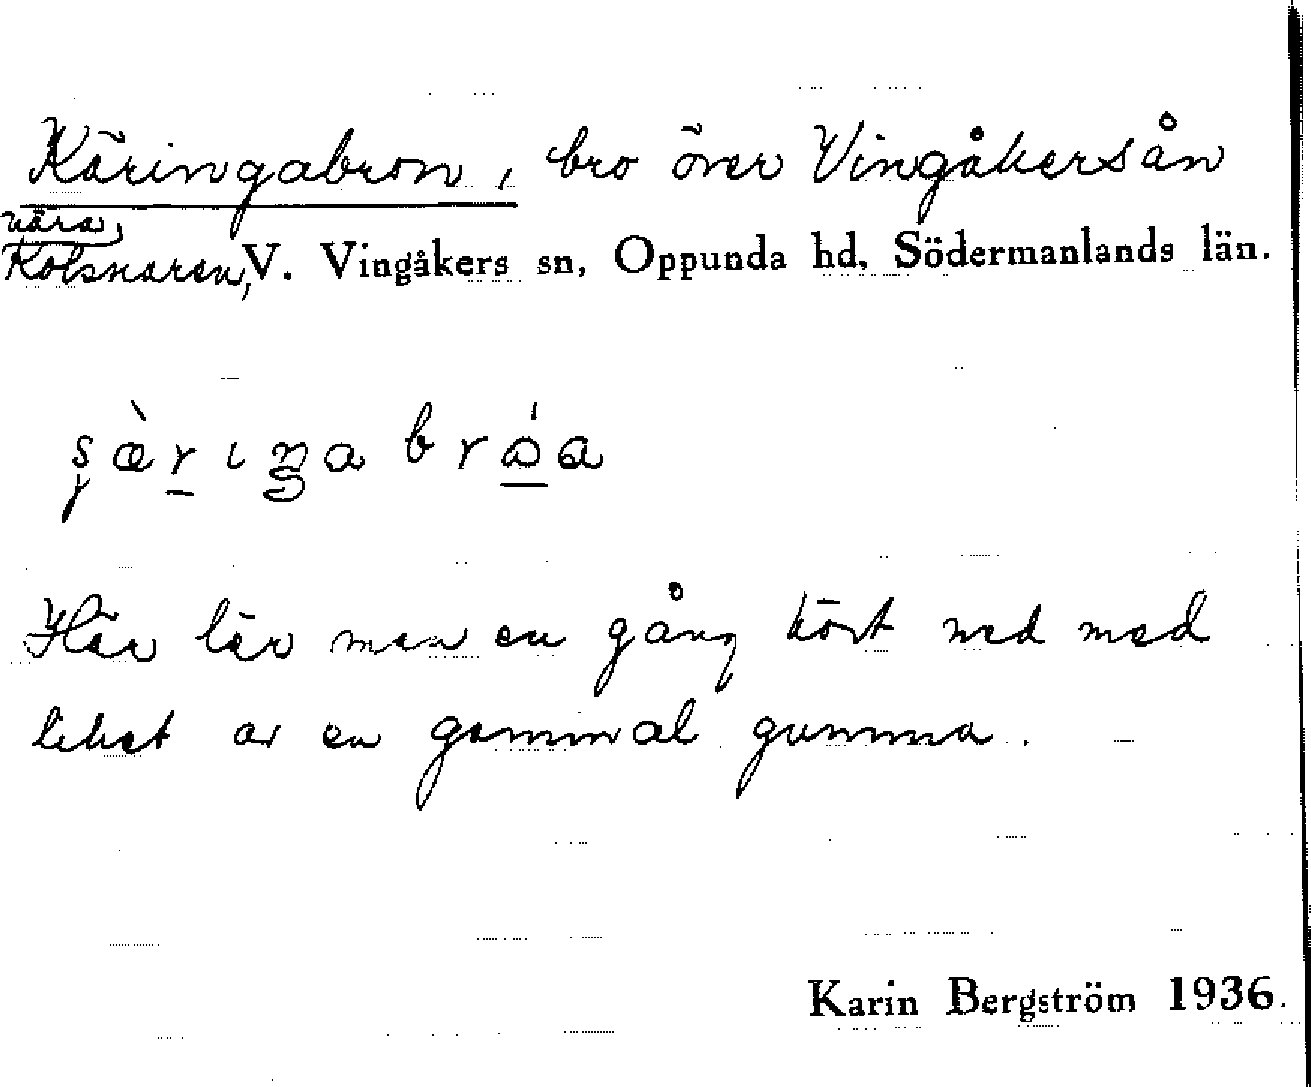 Käringabron, bro över Vingåkersån
nära
Kolsnaren, V. Vingåkers sn, Oppunda hd, Södermanlands län.
Här lär man en gång kört ned med
liket av en gammal gumma.
Karin Bergström 1936.